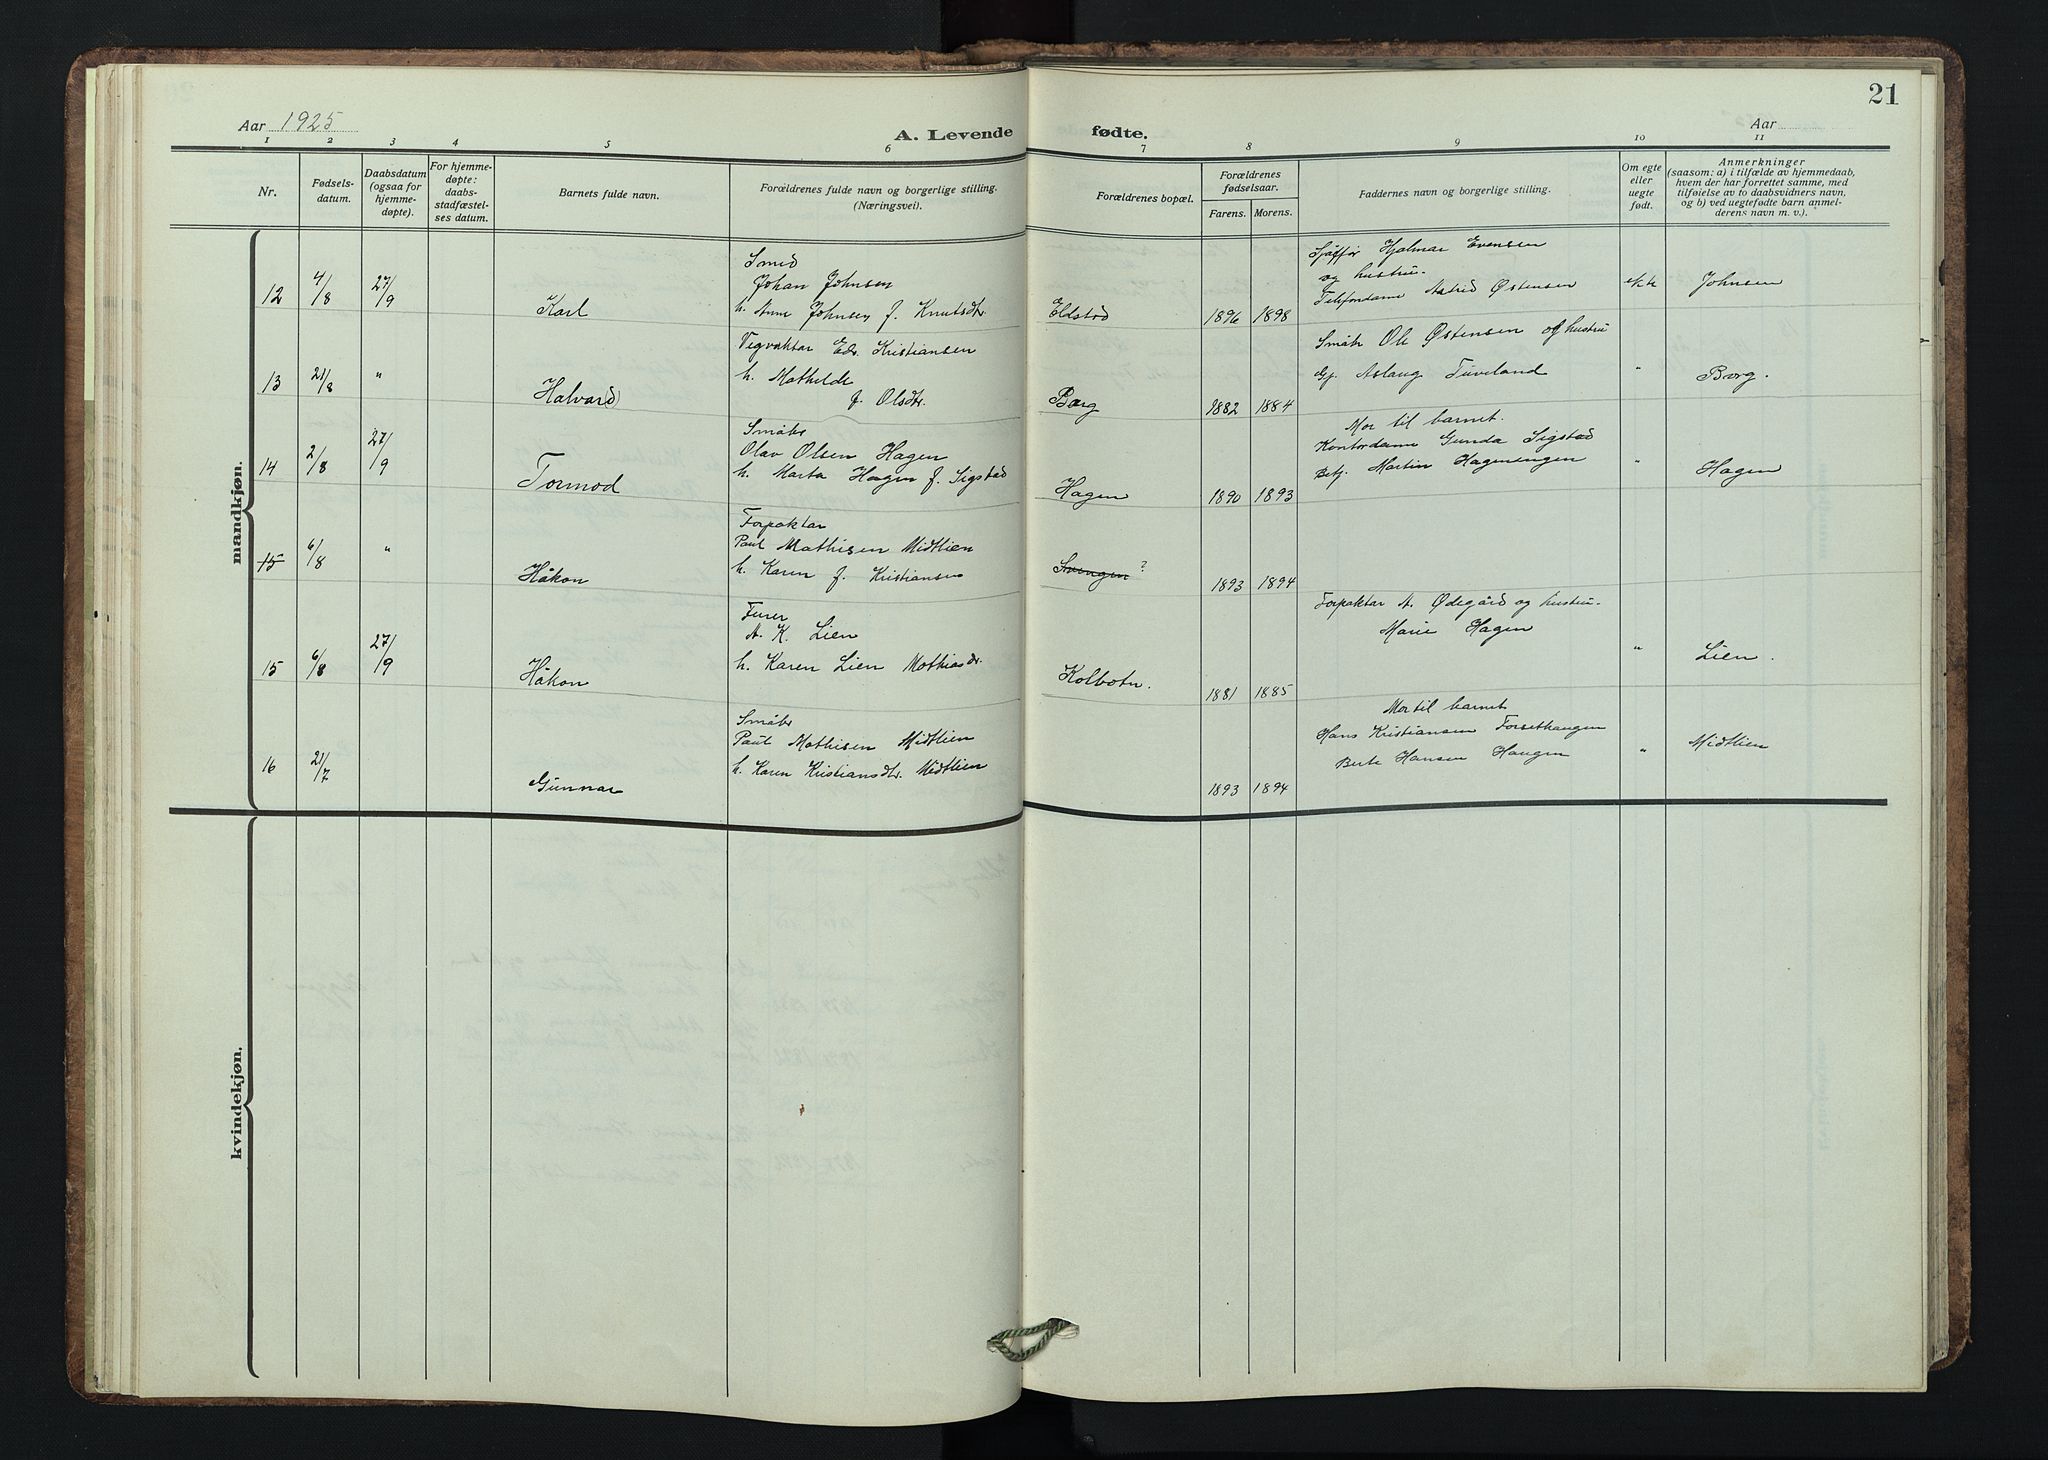 21
Aar 1925
A. Levende fødte.
Aar
1 2 3 4 5 6 7 8 9 10 11
Nr.
Fødsels-
datum.
Daabsdatum
(ogsaa for
hjemme-
døpte).
For hjemme-
døpte:
daabs-
stadfæstel-
ses datum.
Barnets fulde navn.
Forældrenes fulde navn og borgerlige stilling.
(Næringsvei).
Forældrenes bopæl.
Forældrenes
fødselsaar.
Farens. Morens.
Faddernes navn og borgerlige stilling.
Om egte
eller
uegte
født.
Anmerkninger
(saasom: a) i tilfælde av hjemmedaab,
hvem der har forrettet samme, med
tilføielse av to daabsvidners navn,
og b) ved uegtefødte barn anmel-
derens navn m. v.).
mandkjøn.
12 4/8 27/9 Karl
Smed
Johan Johnsen
h. Anne Johnsen f. Knutsdtr.
Eldstad 1896 1898
Sjåffør Hjalmar Evensen
og hustru.
Telefondame Astrid Østensen
ekte Johnsen
13 21/8 " Halvar(d)
Vegvaktar Edv. Kristiansen
h. Mathilde
f. Olsdtr.
Borg 1882 1884
Småbr Ole Østensen og hustru
Gj. Aslaug Tuveland
" Borg.
14 2/8 27/9 Tormod
Småbr
Olav Olsen Hagen
h. Marta Hagen f. Sigstad
Hagen 1890 1893
Mor til barnet.
Kontordame Gunda Sigstad
Betj. Martin Hagenengen
" Hagen
15 6/8 " Håkon
Forpaktar
Paul Mathisen Midtlien
h. Karen f. Kristiansen
? 1893 1894
15 6/8 27/9 Håkon
Furer
A. K. Lien
h. Karen Lien Mathiasdr.
Kolbotn. 1881 1885
Forpaktar A. Ødegård og hustru.
Marie Hagen
" Lien.
16 21/7 Gunnar
Småbr
Paul Mathisen Midtlien
h. Karen Kristiansdtr. Midtlien
1893 1894
Mor til barnet
Hans Kristiansen Forsethaugen
Berte Hansen Haugen
" Midtlien
kvindekjøn.